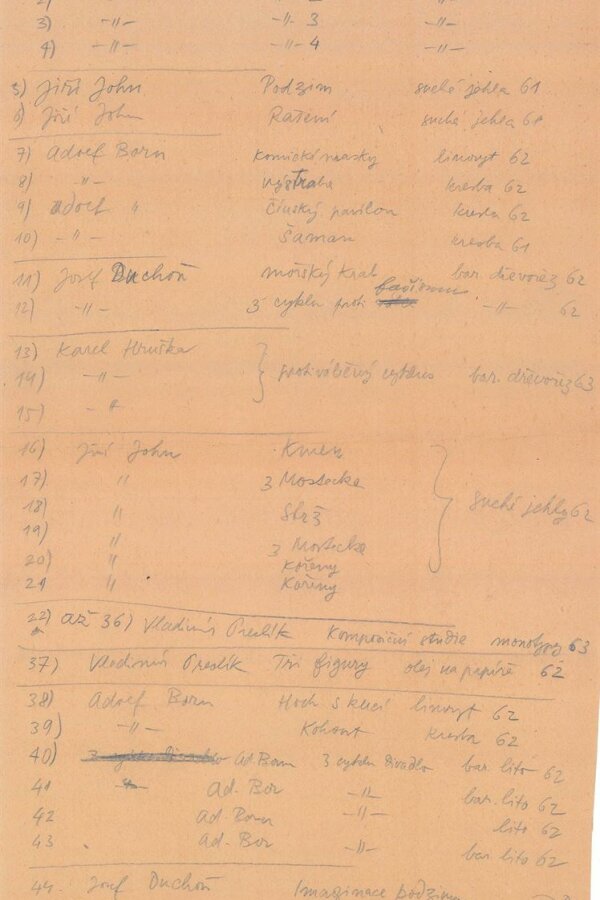 3) -"- -"- 3 -"-
4) -"- -"- 4 -"-
5) Jiří John Podzim suchá jehla 61
6) Jiří John Ražení suchá jehla 61
7) Adolf Born Komické masky linoryt 62
8) -"- výstraha kresba 62
9) Adolf " Čínský pavilon kresba 62
10) -"- Šaman kresba 61
11) Josef Duchoň mořský krab bar. dřevořez 62
12) -"- z cyklu proti fašismu -"- 62
13) Karel Hruška
14) -"- protiválečný cyklus bar. dřevořez 63
15) - "
16) Jiří John Kmen
17) " z Mostecka
18) " Strž suché jehly 62
19) " z Mostecka
20) " Kořeny
21 " Kořeny
22) až 36) Vladimír Preclík Kompoziční studie monotypy 63
37) Vladimír Preclík Tři figury olej na papíře 62
38) Adolf Born Hoch s klecí linoryt 62
39) -"- Kohout kresba 62
40) Ad. Born z cyklu divadlo bar. lito 62
41 Ad. Bor -"- bar. lito 62
42 Ad. Born -"- lito 62
43 Ad. Bor -"- bar. lito 62
44. Josef Duchoň Imaginace podzimu